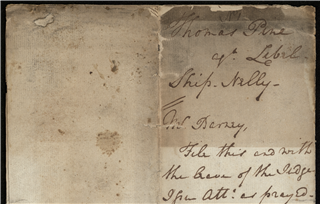 Thomas Pine
agt. Libel
Ship. Nelly
Mr Barney,
File this and with
the leave of the Judge
Issue Atts. as prayed